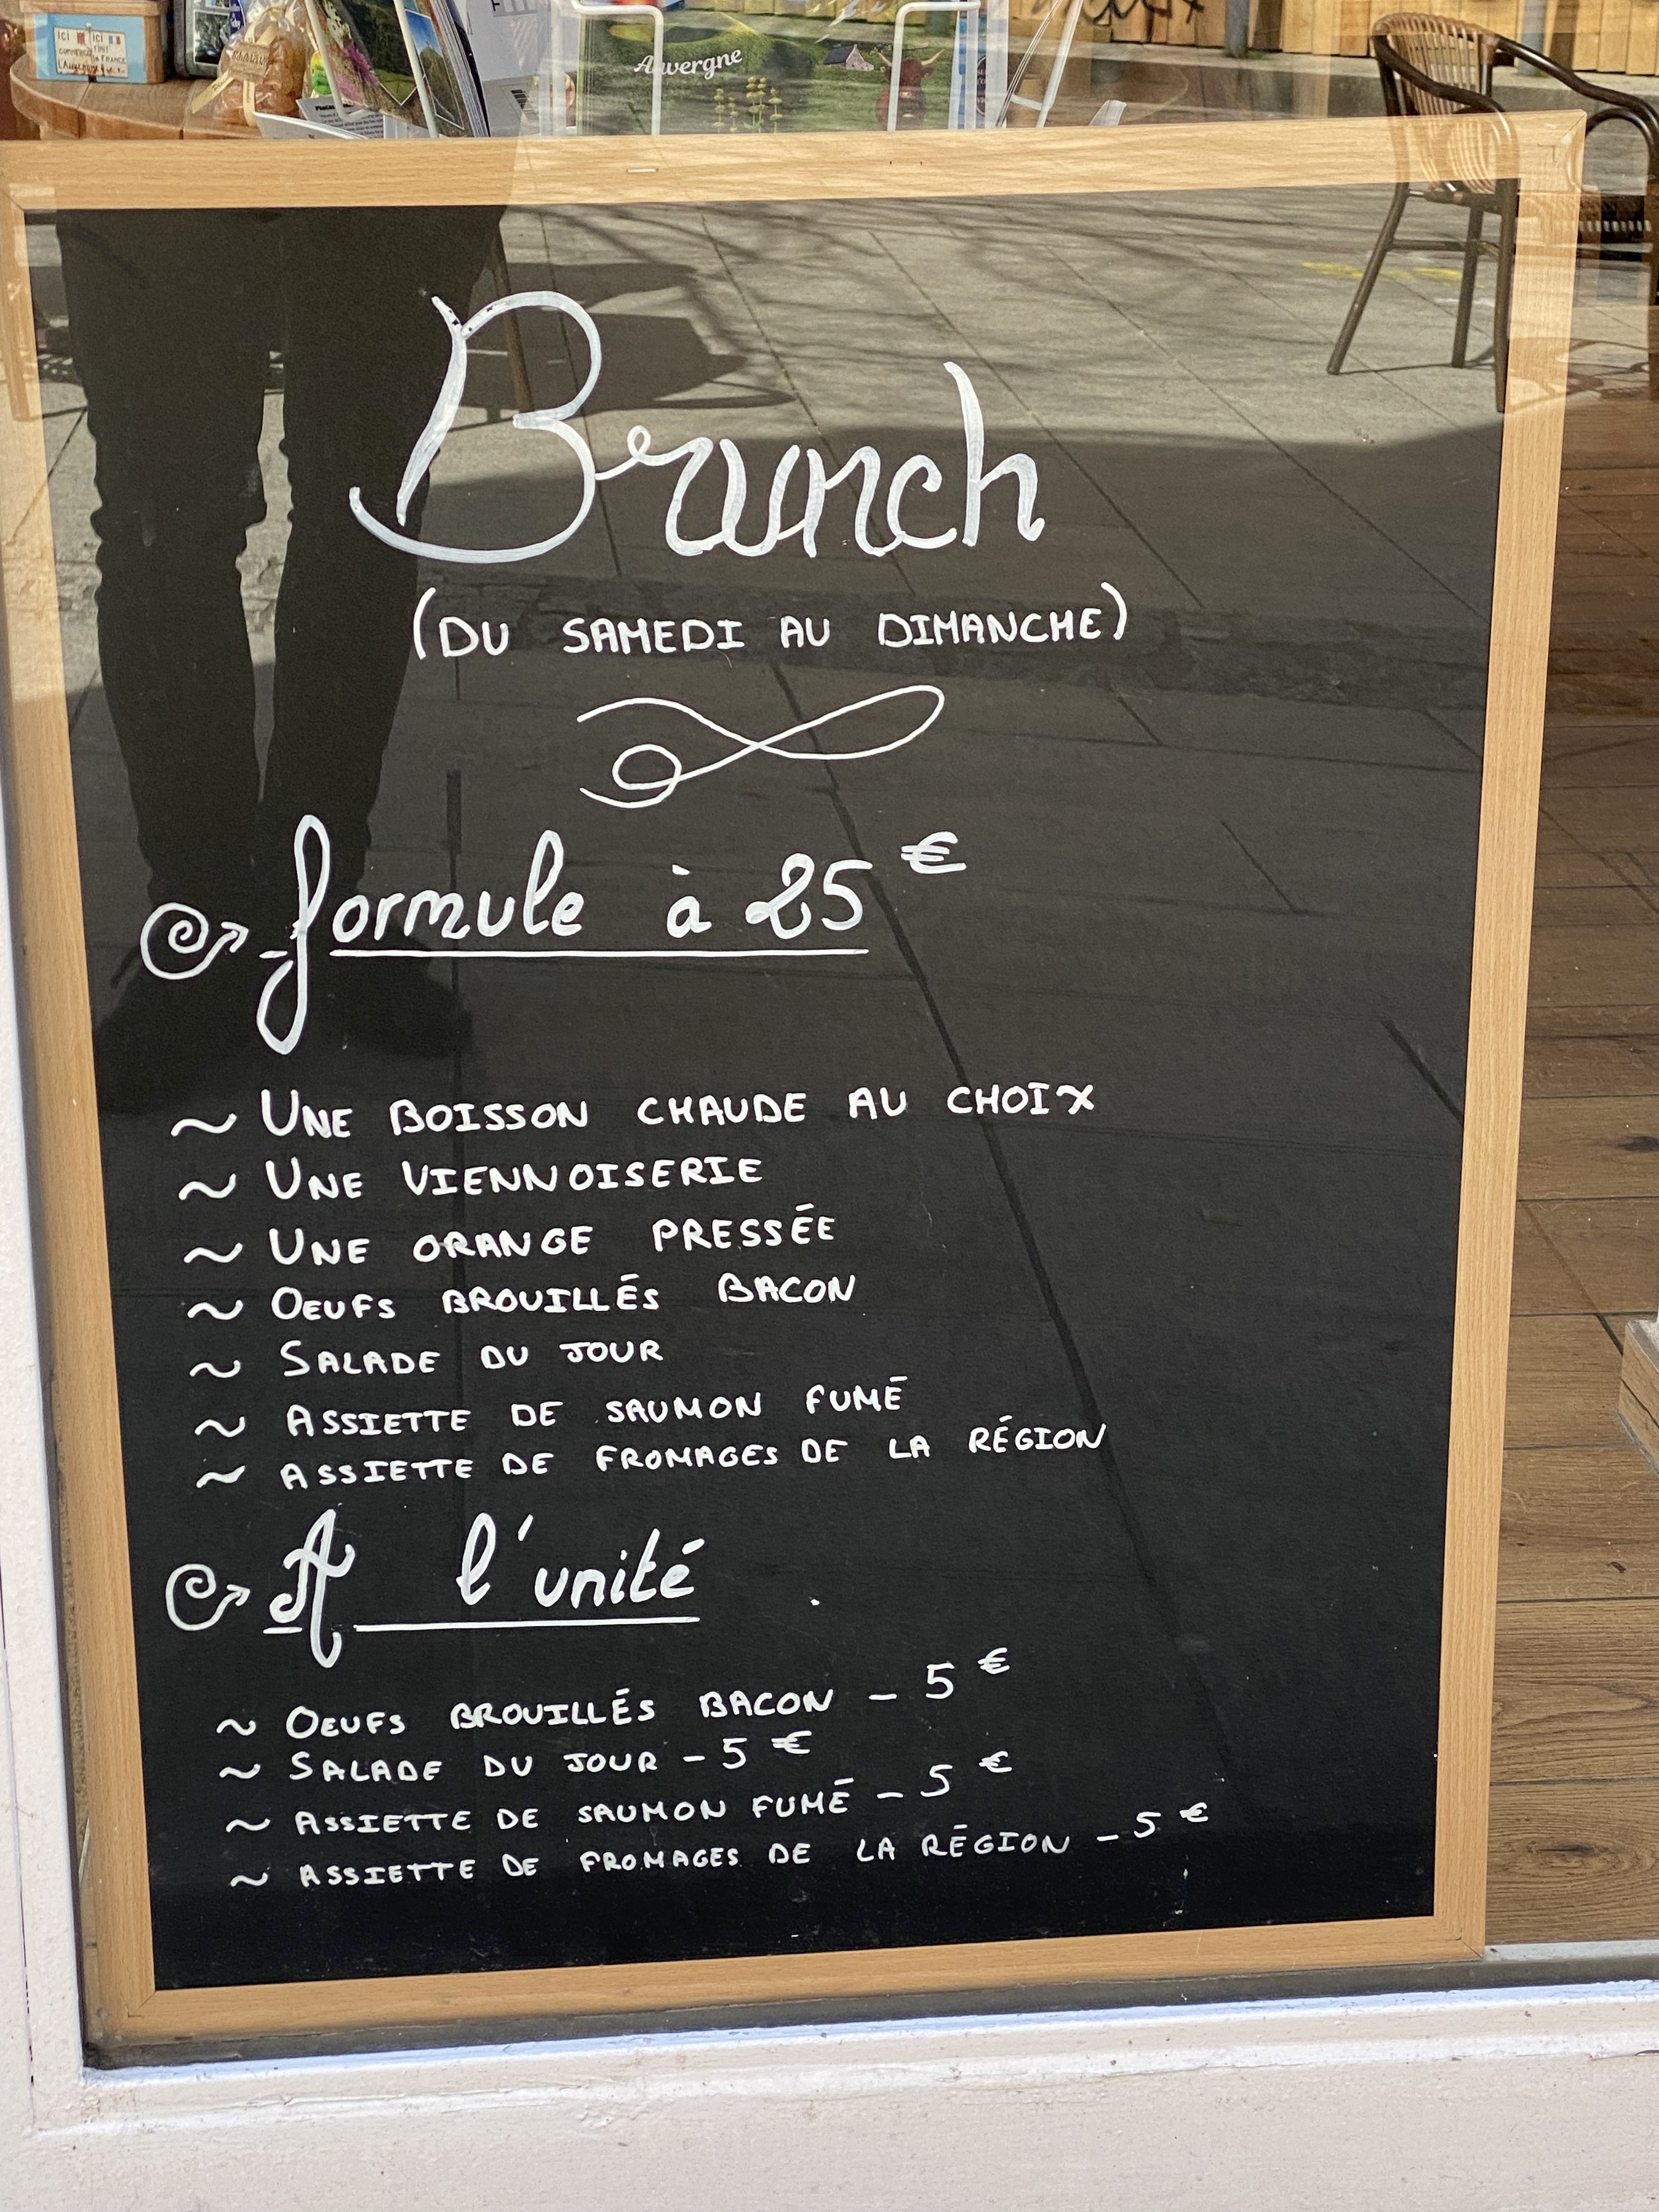 Auvergne
Brunch
(DU SAMEDI AU DIMANCHE)
formule à 25 €
~ UNE BOISSON CHAUDE AU CHOIX
~ UNE VIENNOISERIE
~ UNE ORANGE PRESSÉE
~ OEUFS BROUILLÉS BACON
~ SALADE DU JOUR
~ ASSIETTE DE SAUMON FUMÉ
~ ASSIETTE DE FROMAGES DE LA RÉGION
A l'unité
~ OEUFS BROUILLÉS BACON - 5 €
~ SALADE DU JOUR - 5 €
~ ASSIETTE DE SAUMON FUMÉ - 5 €
~ ASSIETTE DE FROMAGES DE LA RÉGION - 5 €